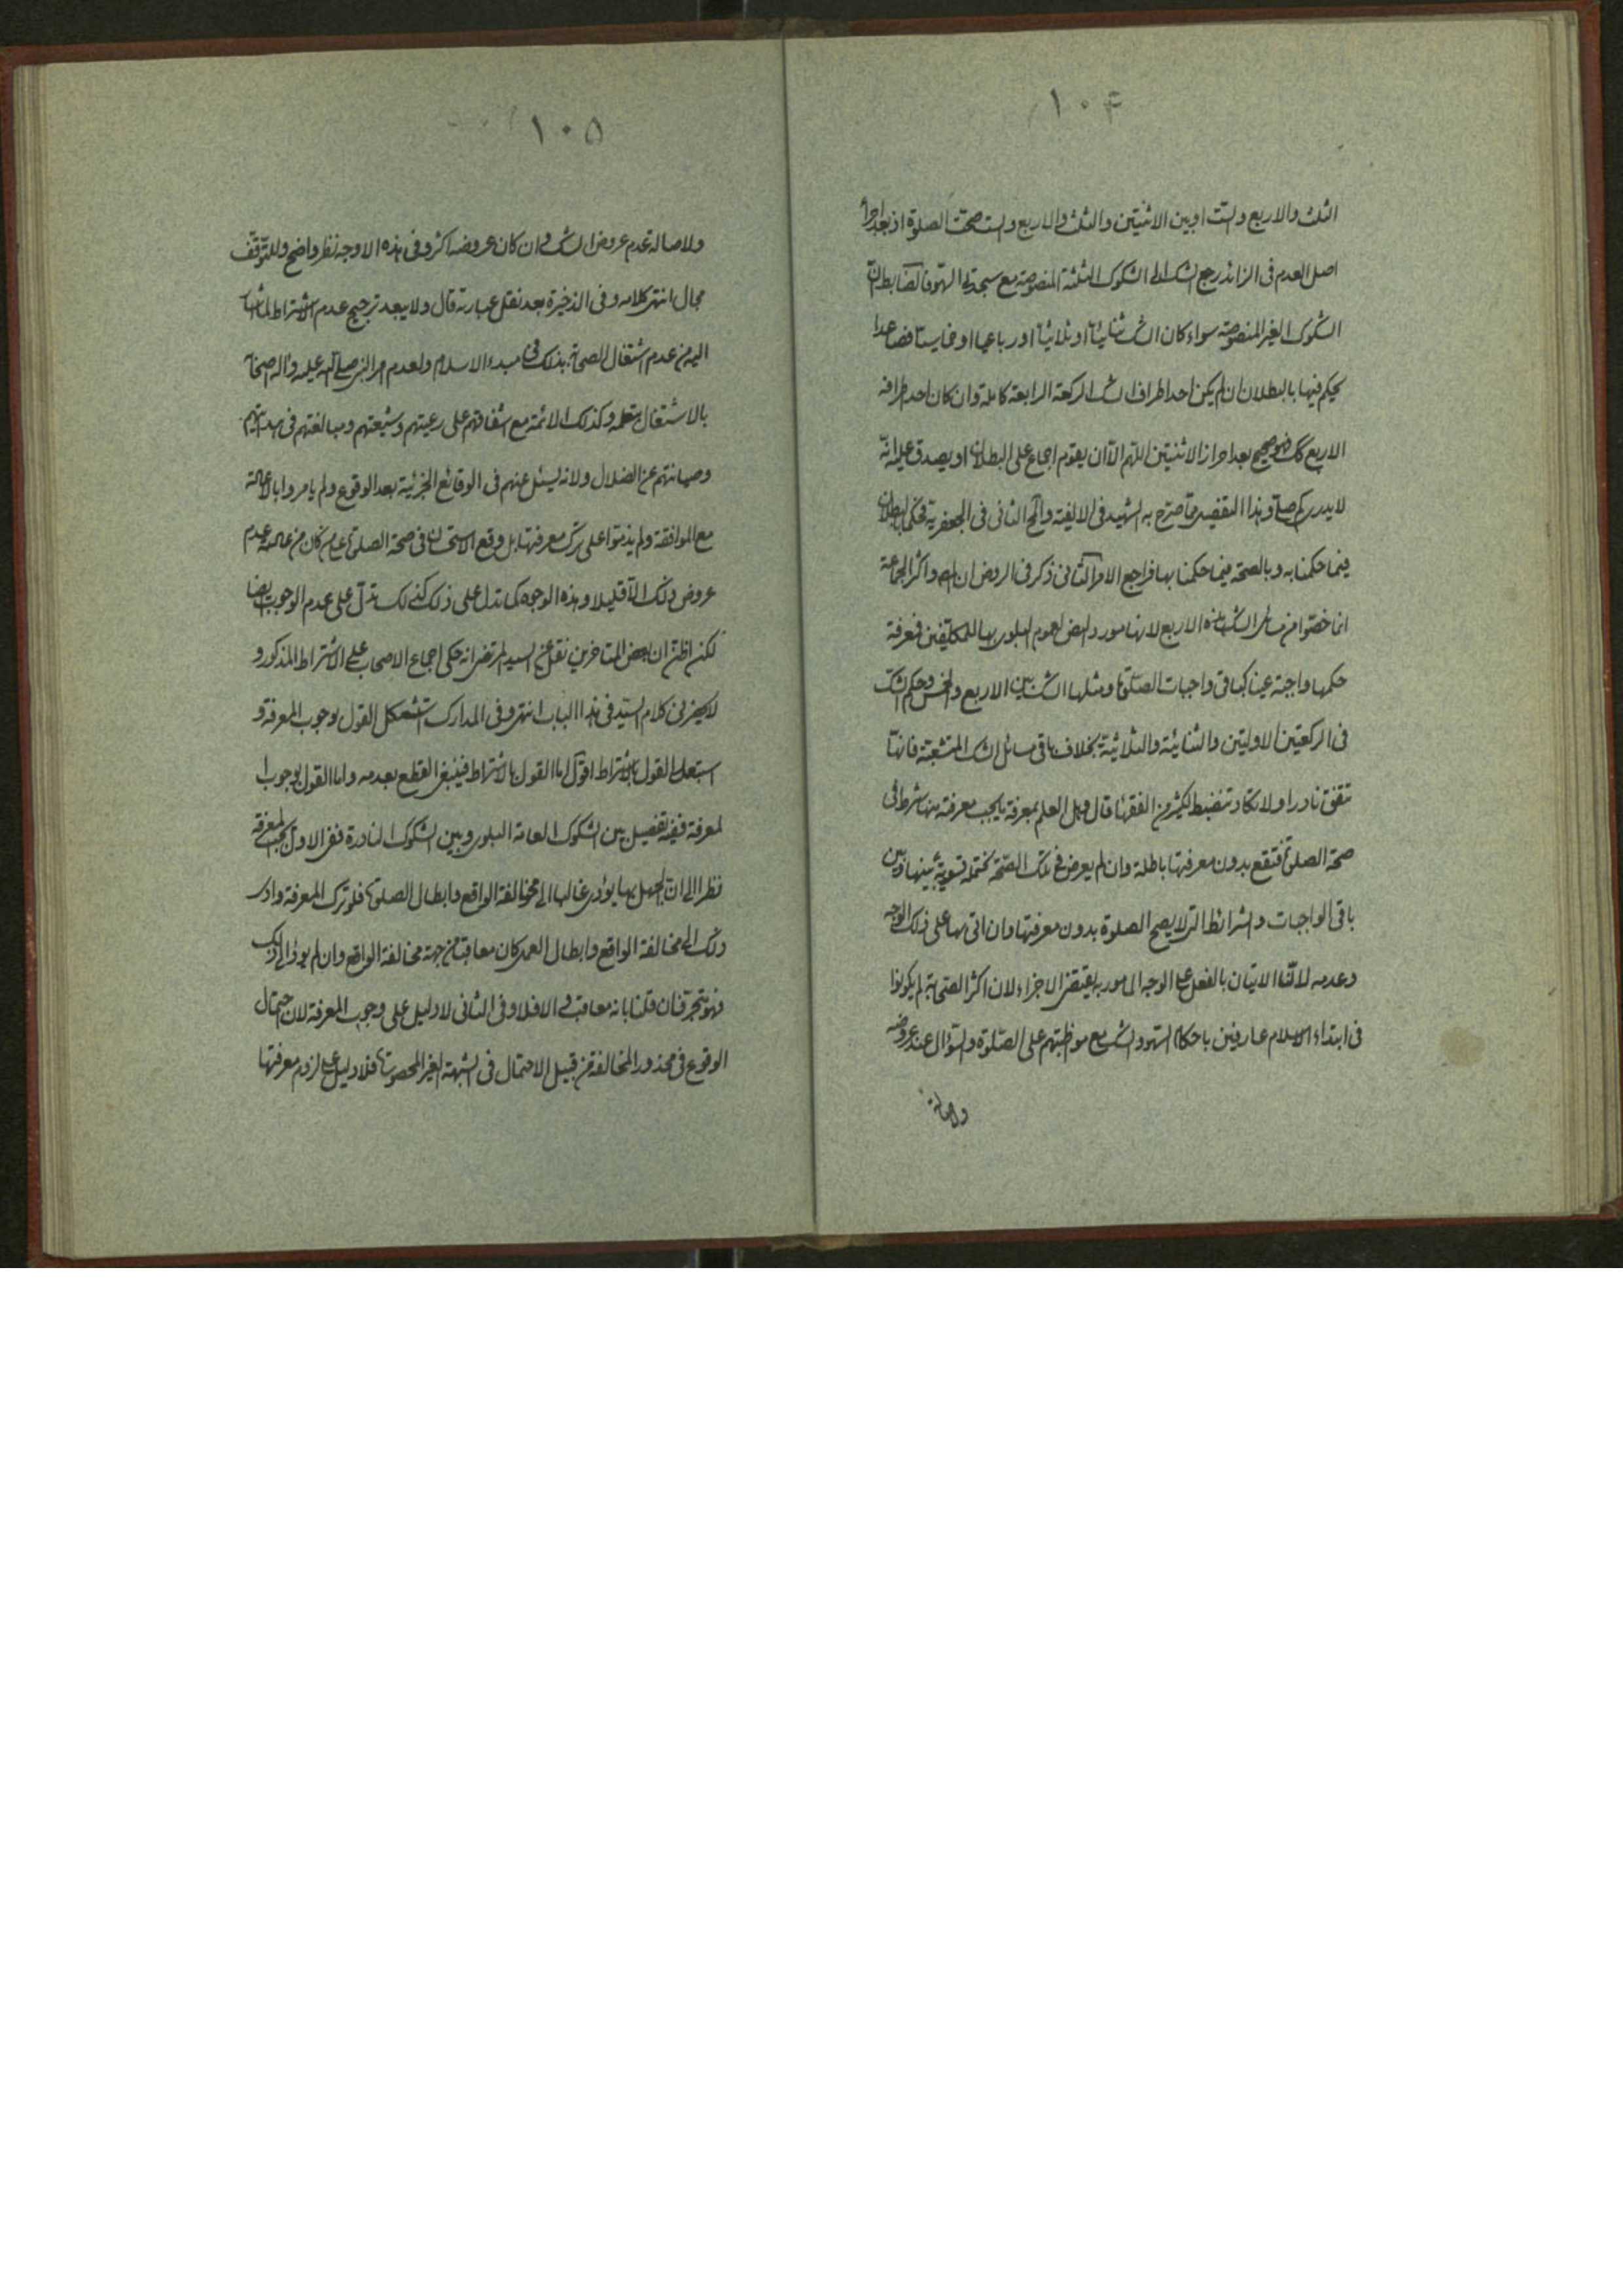 ١٠۴
الثلث والاربع والست او بين الاثنتين والثلث والاربع والست صحت الصلوة اذ بعد اجراء
اصل العدم فى الزائد رجع الشك الى الشكوك الثلثة المنصوصة مع سجدتى السهو فالضابط ان
الشكوك الغير المنصوصة سواء كان الشك ثنائيا او ثلاثيا او رباعيا او خماسيا فصاعدا
يحكم فيها بالبطلان ان لم يكن احد اطراف الشك الركعة الرابعة كاملة وان كان احد اطرافه
الاربع كك فهو صحيح بعد احراز الاثنتين اللهم الا ان يقوم اجماع على البطلان او يصدق عليه انه
لا يدرى كم صلى وهذا التفصيل مما صرح به الشهيد فى الالفية والمحقق الثانى فى الجعفرية فحكما بالبطلان
فيما حكمنا به وبالصحة فيما حكمنا بها فراجع الامر الثانى ذكر فى الروض ان المصـ واكثر الجماعة
انما خصوا من مسائل الشك هذه الاربع لانها مورد النص لعموم البلوى بها للمكلفين فمعرفة
حكمها واجبة عينا كباقى واجبات الصلوة ومثلها الشك بين الاربع والخمس وحكم الشك
فى الركعتين الاوليتين والثنائية والثلاثية بخلاف باقى مسائل الشك المتشعبة فانها
تتفق نادرا ولا تكاد تنضبط لكثير من الفقهاء قال وهل العلم بمعرفة ما يجب معرفته منها شرط فى
صحة الصلوة فتقع بدون معرفتها باطلة وان لم يعرض فى تلك الصحة يحتمله تسوية بينها وبين
باقى الواجبات والشرائط التى لا يصح الصلوة بدون معرفتها وان اتى بها على ذلك الوجه
وعدمه لان الاتيان بالفعل على الوجه المامور به يقتضى الاجزاء ولان اكثر الصحابة لم يكونوا
فى ابتداء الاسلام عارفين باحكام السهو والشك مع مواظبتهم على الصلوة والسؤال عند عروضه
ولاصالة
١٠۵
ولاصالة عدم عروض الشك وان كان عروضه اكثر وفى هذه الاوجه نظر واضح وللتوقف
مجال انتهى كلامه وفى الذخيرة بعد نقل عبارته قال ولا يبعد ترجيح عدم الاشتراط لما اشار
اليه من عدم اشتغال الصحابة بذلك فى مبدء الاسلام ولعدم امر النبى صلى الله عليه واله الصحابة
بالاشتغال بتعلمه وكذلك الائمة مع اشفاقهم على رعيتهم وشيعتهم ومبالغتهم فى هدايتهم
وصيانتهم عن الضلال ولانه يسئل عنهم فى الوقائع الجزئية بعد الوقوع ولم يامروا بالاعادة
مع الموافقة ولم يذموا على ترك معرفتها بل وقع الاستحسان فى صحة الصلوة عمن كان من عادته عدم
عروض ذلك الا قليلا وهذه الوجوه كما تدل على ذلك كذلك تدل على عدم الوجوب ايضا
لكن اظن ان بعض المتاخرين نقل عن السيد المرتضى انه حكى اجماع الاصحاب على الاشتراط المذكور و
لا يحضرنى كلام السيد فى هذا الباب انتهى وفى المدارك استشكل القول بوجوب المعرفة و
استبعد القول بالاشتراط اقول اما القول بالاشتراط فينبغى القطع بعدمه واما القول بوجوب ا
لمعرفة ففيه تفصيل بين الشكوك العامة البلوى وبين الشكوك النادرة ففى الاول يجب المعرفة
نظرا الى ان الجهل بها يؤدى غالبا الى مخالفة الواقع وابطال الصلوة فلو ترك المعرفة وادى
ذلك الى مخالفة الواقع وابطال العمل كان معاقبا من جهة مخالفة الواقع وان لم يؤد الى ذلك
فهو متجر فان قلنا بانه معاقب والا فلا وفى الثانى لا دليل على وجوب المعرفة لان احتمال
الوقوع فى محذور المخالفة من قبيل الاحتمال فى الشبهة الغير المحصورة فلا دليل على لزوم معرفتها